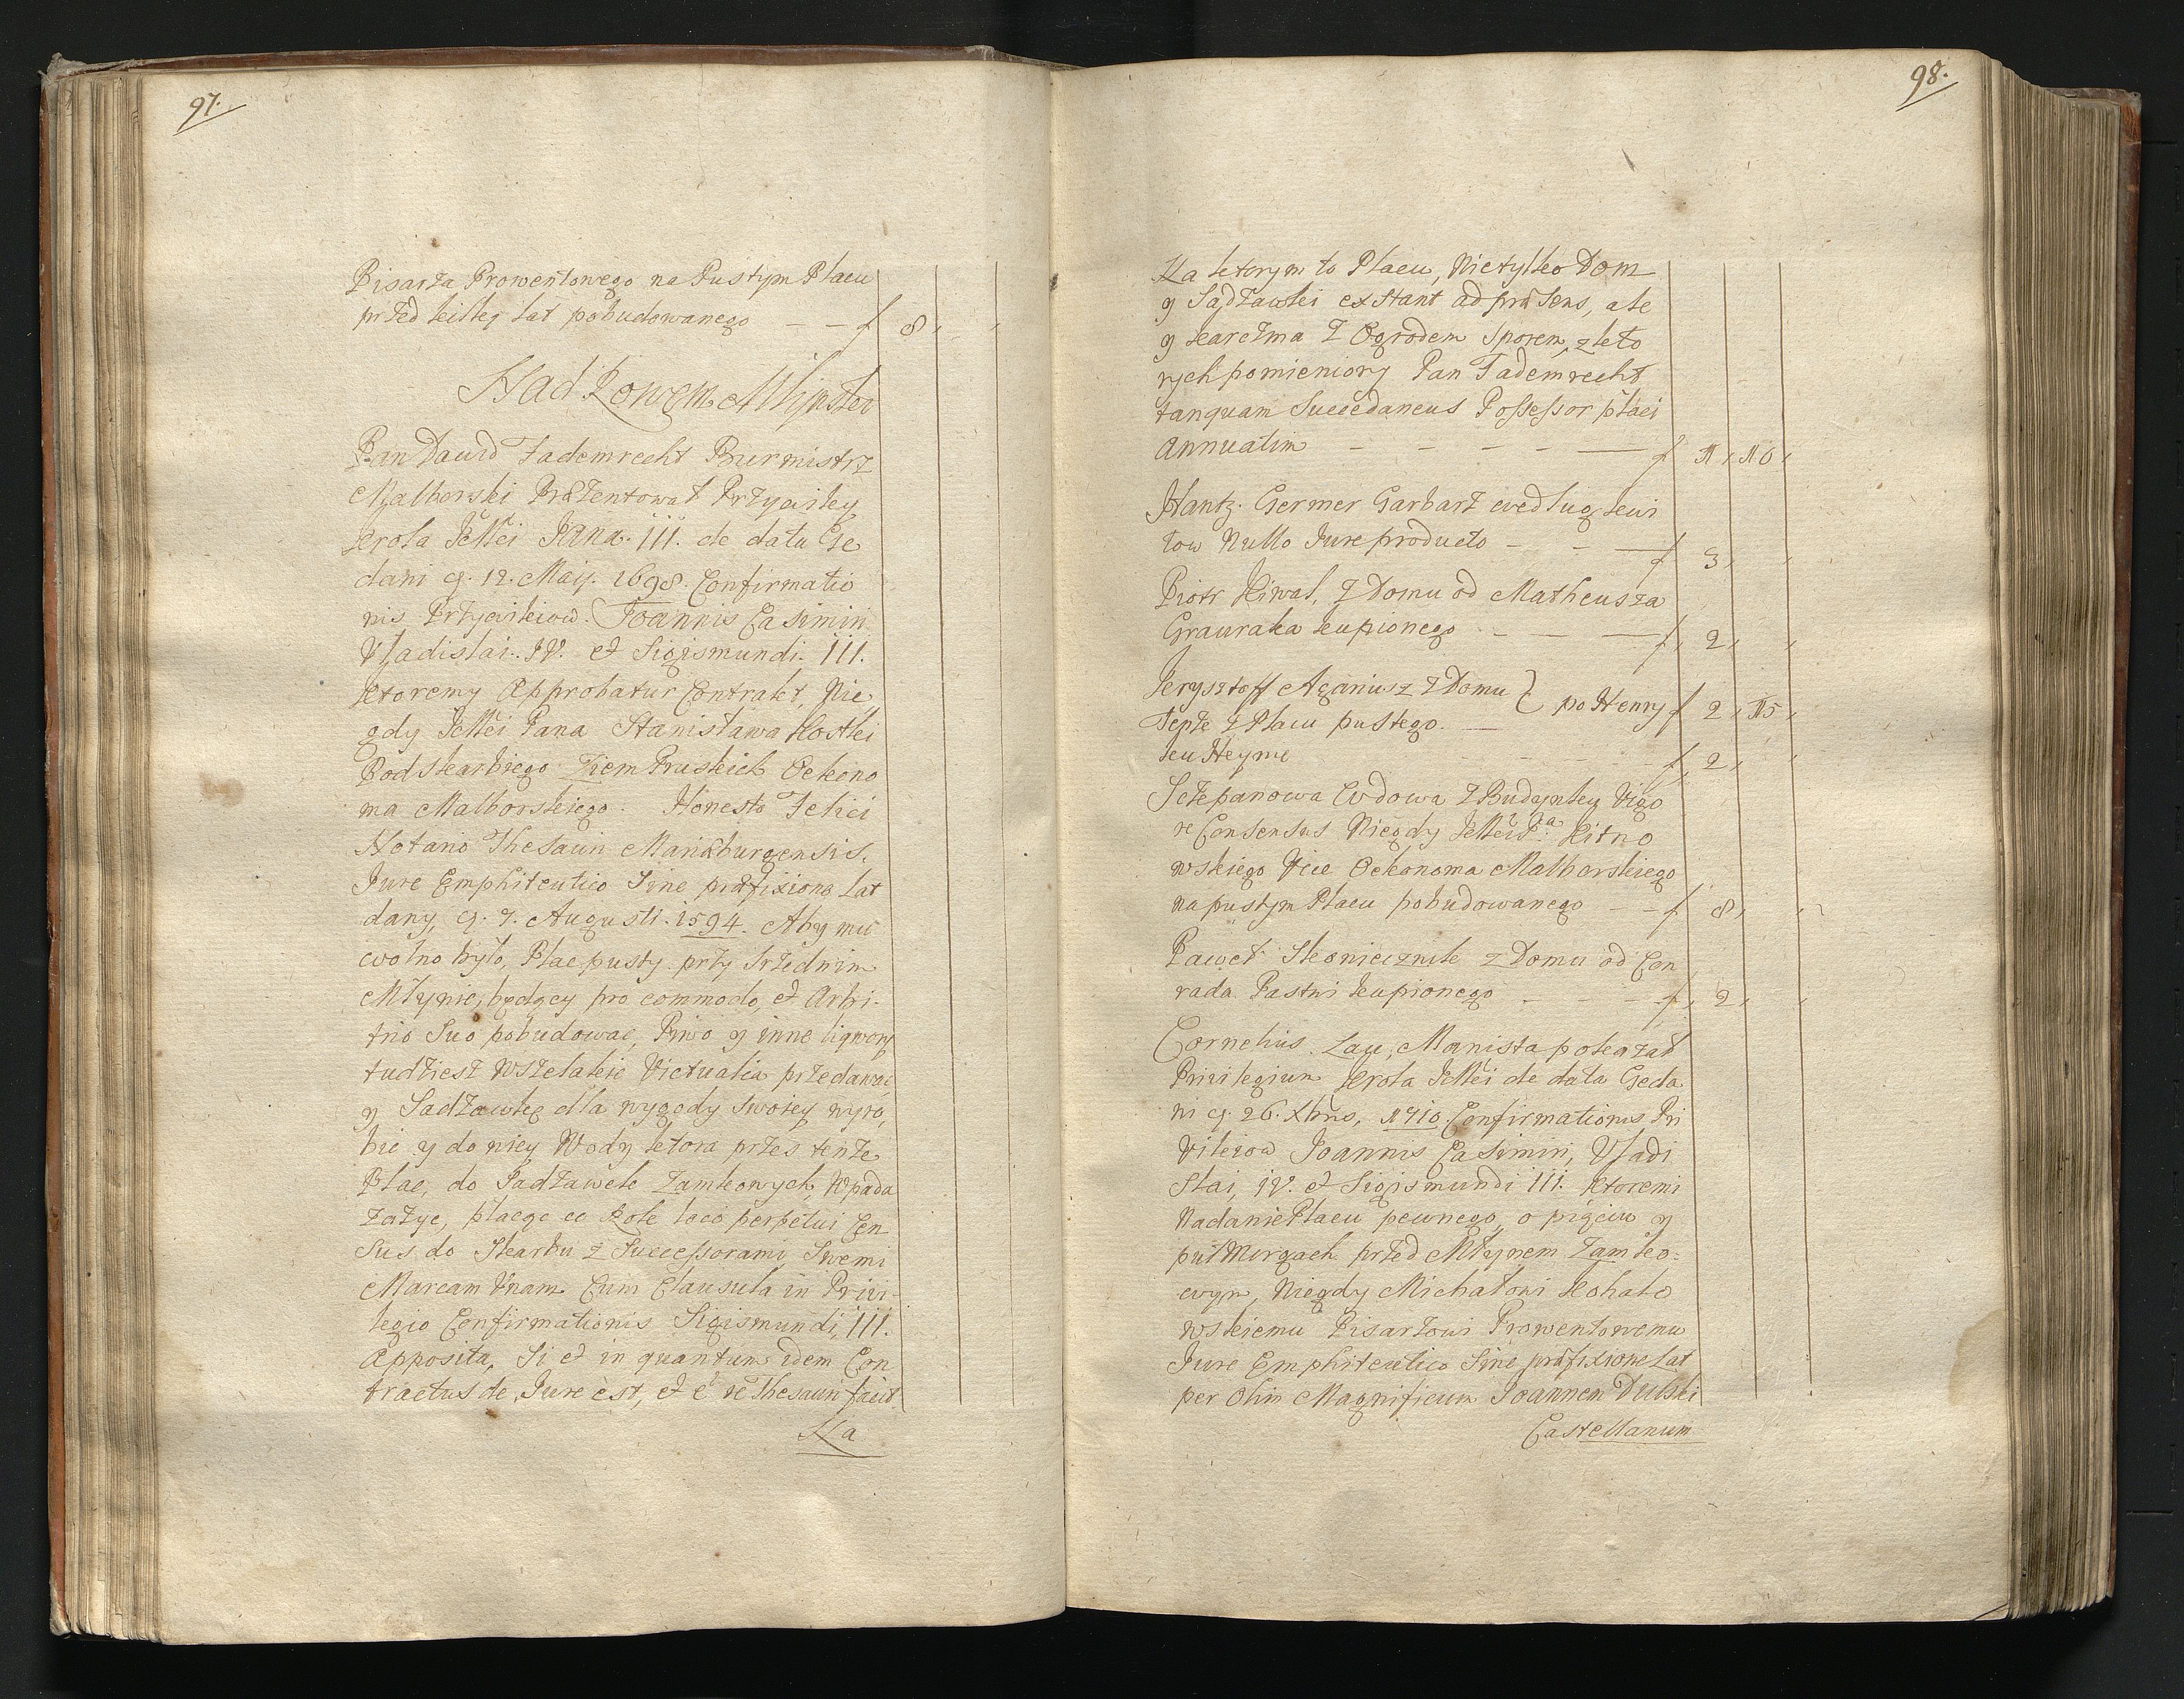 97.
Pisarża Prowentowego na Pustym Placu
prżed kilką lat pobudowanego — — f 8,
Nad Rowem Młynskim
Pan Dawid Fademrecht Burmistrz
Malborski Præżentował Przywiley
Krola JeMci Jana. III. de data Ge
dani d. 12. Maij. 1698. Confirmatio
nis Przywileiow. Joannis Casimiri
Vladislai. IV. et Sigismundi. III.
ktoremy Approbatur Contrakt, Nie,
gdy JeMci Pana Stanisława Kostki
Podskarbiego Ziem Pruskich Oekono
ma Malborskiego. Honesto Felici
Notario Thesauri Mariæburgensis.
Jure Emphiteutico Sine præfixione Lat
dany, d. 7. Augusti. 1594. Aby mu
wolno było, Plac pusty przy Srzednim
Młynie, będący pro commodo, et Arbi-
trio Suo pobudowac, Piwo y inne liqwory
tudżiesz Wszelakie Victualia przedawac
y Sadżawkę dla wygody Swoiey wyro,
bic y do niey Wody ktora przes tenże
Plac, do Sadżawek Zamkowych, Wpada
zażyc, płacąc co Rok loco perpetui Cen
sus do Skarbu z Successorami Swemi
Marcam Unam Cum Clausula in Privi-
legio Confirmationis Sigismundi, III.
Apposita, Si et in quantum idem Con
tractus de Jure est, et è re Thesauri faciet.
Na
98.
Na ktorym to Placu, Nietylko Dom
y Sądżawki extant ad præsens, ale
y karcżma z Ogrodem Sporem, z kto
rych pomieniony Pan Fademrecht
tanquam Succedaneus Possessor płaci
Annuatim — — — — — f 1, 10,
Hantz. Germer Garbarż wedlug kwi
tow Nullo Jure producto — — — f 3,
Piotr Kiwal, z Domu od Matheusza
Grauraka kupionego — — — f, 2,
Krysztoff Aganiusz z Domu
Tepże z Placu pustego. — } po Henry f 2, 15,
ku Heyme — — — f, 2,
Sctepanowa Wdowa z Budynku Vigo
re Consensus Niegdy JeMci Pa Kitno
wskiego Vice Oekonoma Malborskiego
na pustym Placu pobudowanego — — f 8,
Paweł Skonieiznik z Domu od Con
rada Pastwi kupionego — — — f, 2,
Cornelius Lau, Manista pokazał
Privilegium Krola JeMci de data Geda
ni d. 26. Xbris, 1710 Confirmationis Pri
vileiow Joannis Casimiri, Vladi
slai, IV. et Sigismundi III. ktoremi
Nadanie Placu pewnego, o pięciu y
puł Morgach przed Młynem Zamko=
wym, Niegdy Michałowi Kohało
wskiemu Pisarżowi Prowentowemu
Jure Emphiteutico Sine præfixione Lat
per Olim Magnificum Joannem Dulski
Castellanum